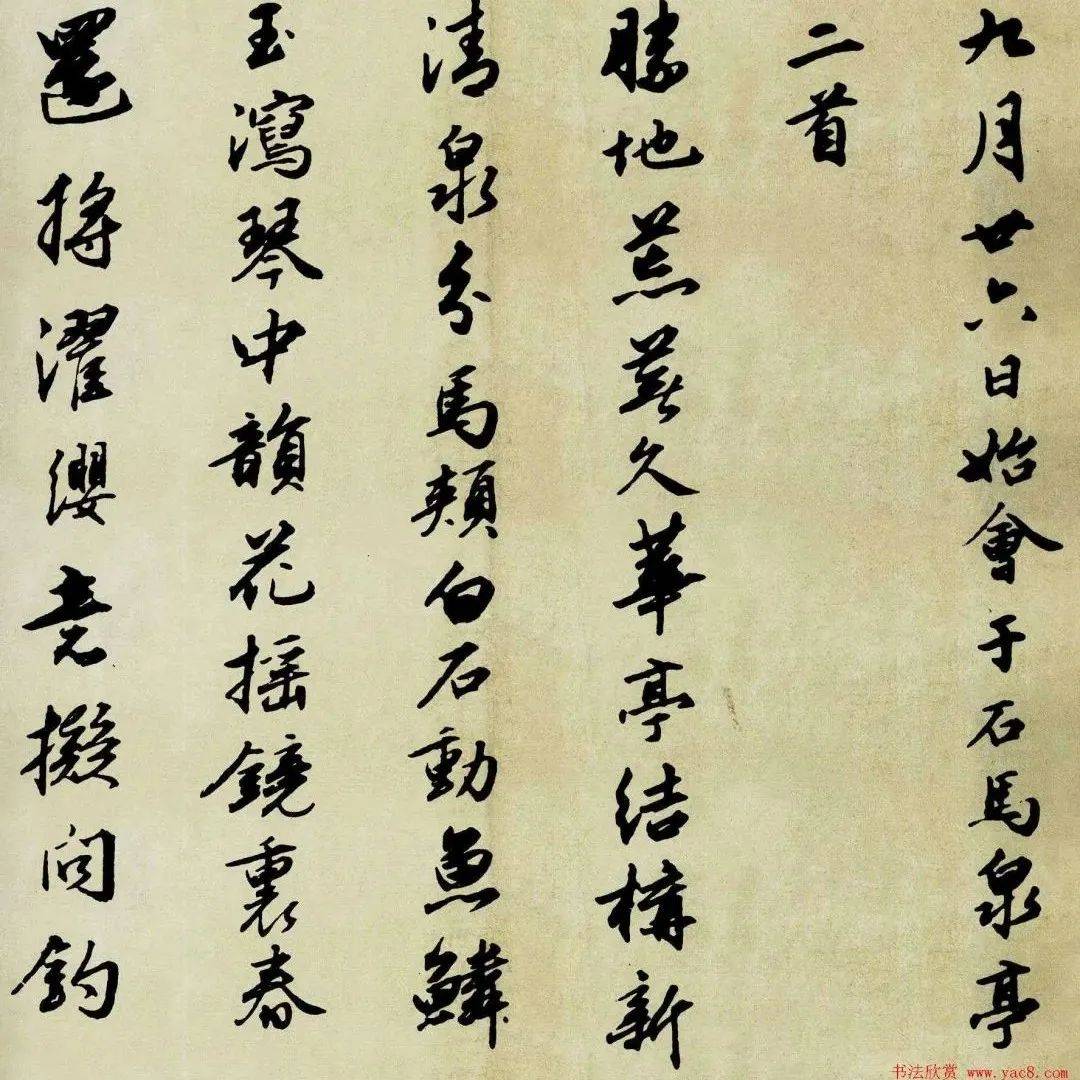 九月廿六日始會于石馬泉亭
二首
勝地荒蕪久華亭結構新
清泉分馬頰白石動魚鱗
玉瀉琴中韻花摇鏡裏春
還將濯纓意擬問釣
书法欣赏 www.yac8.com